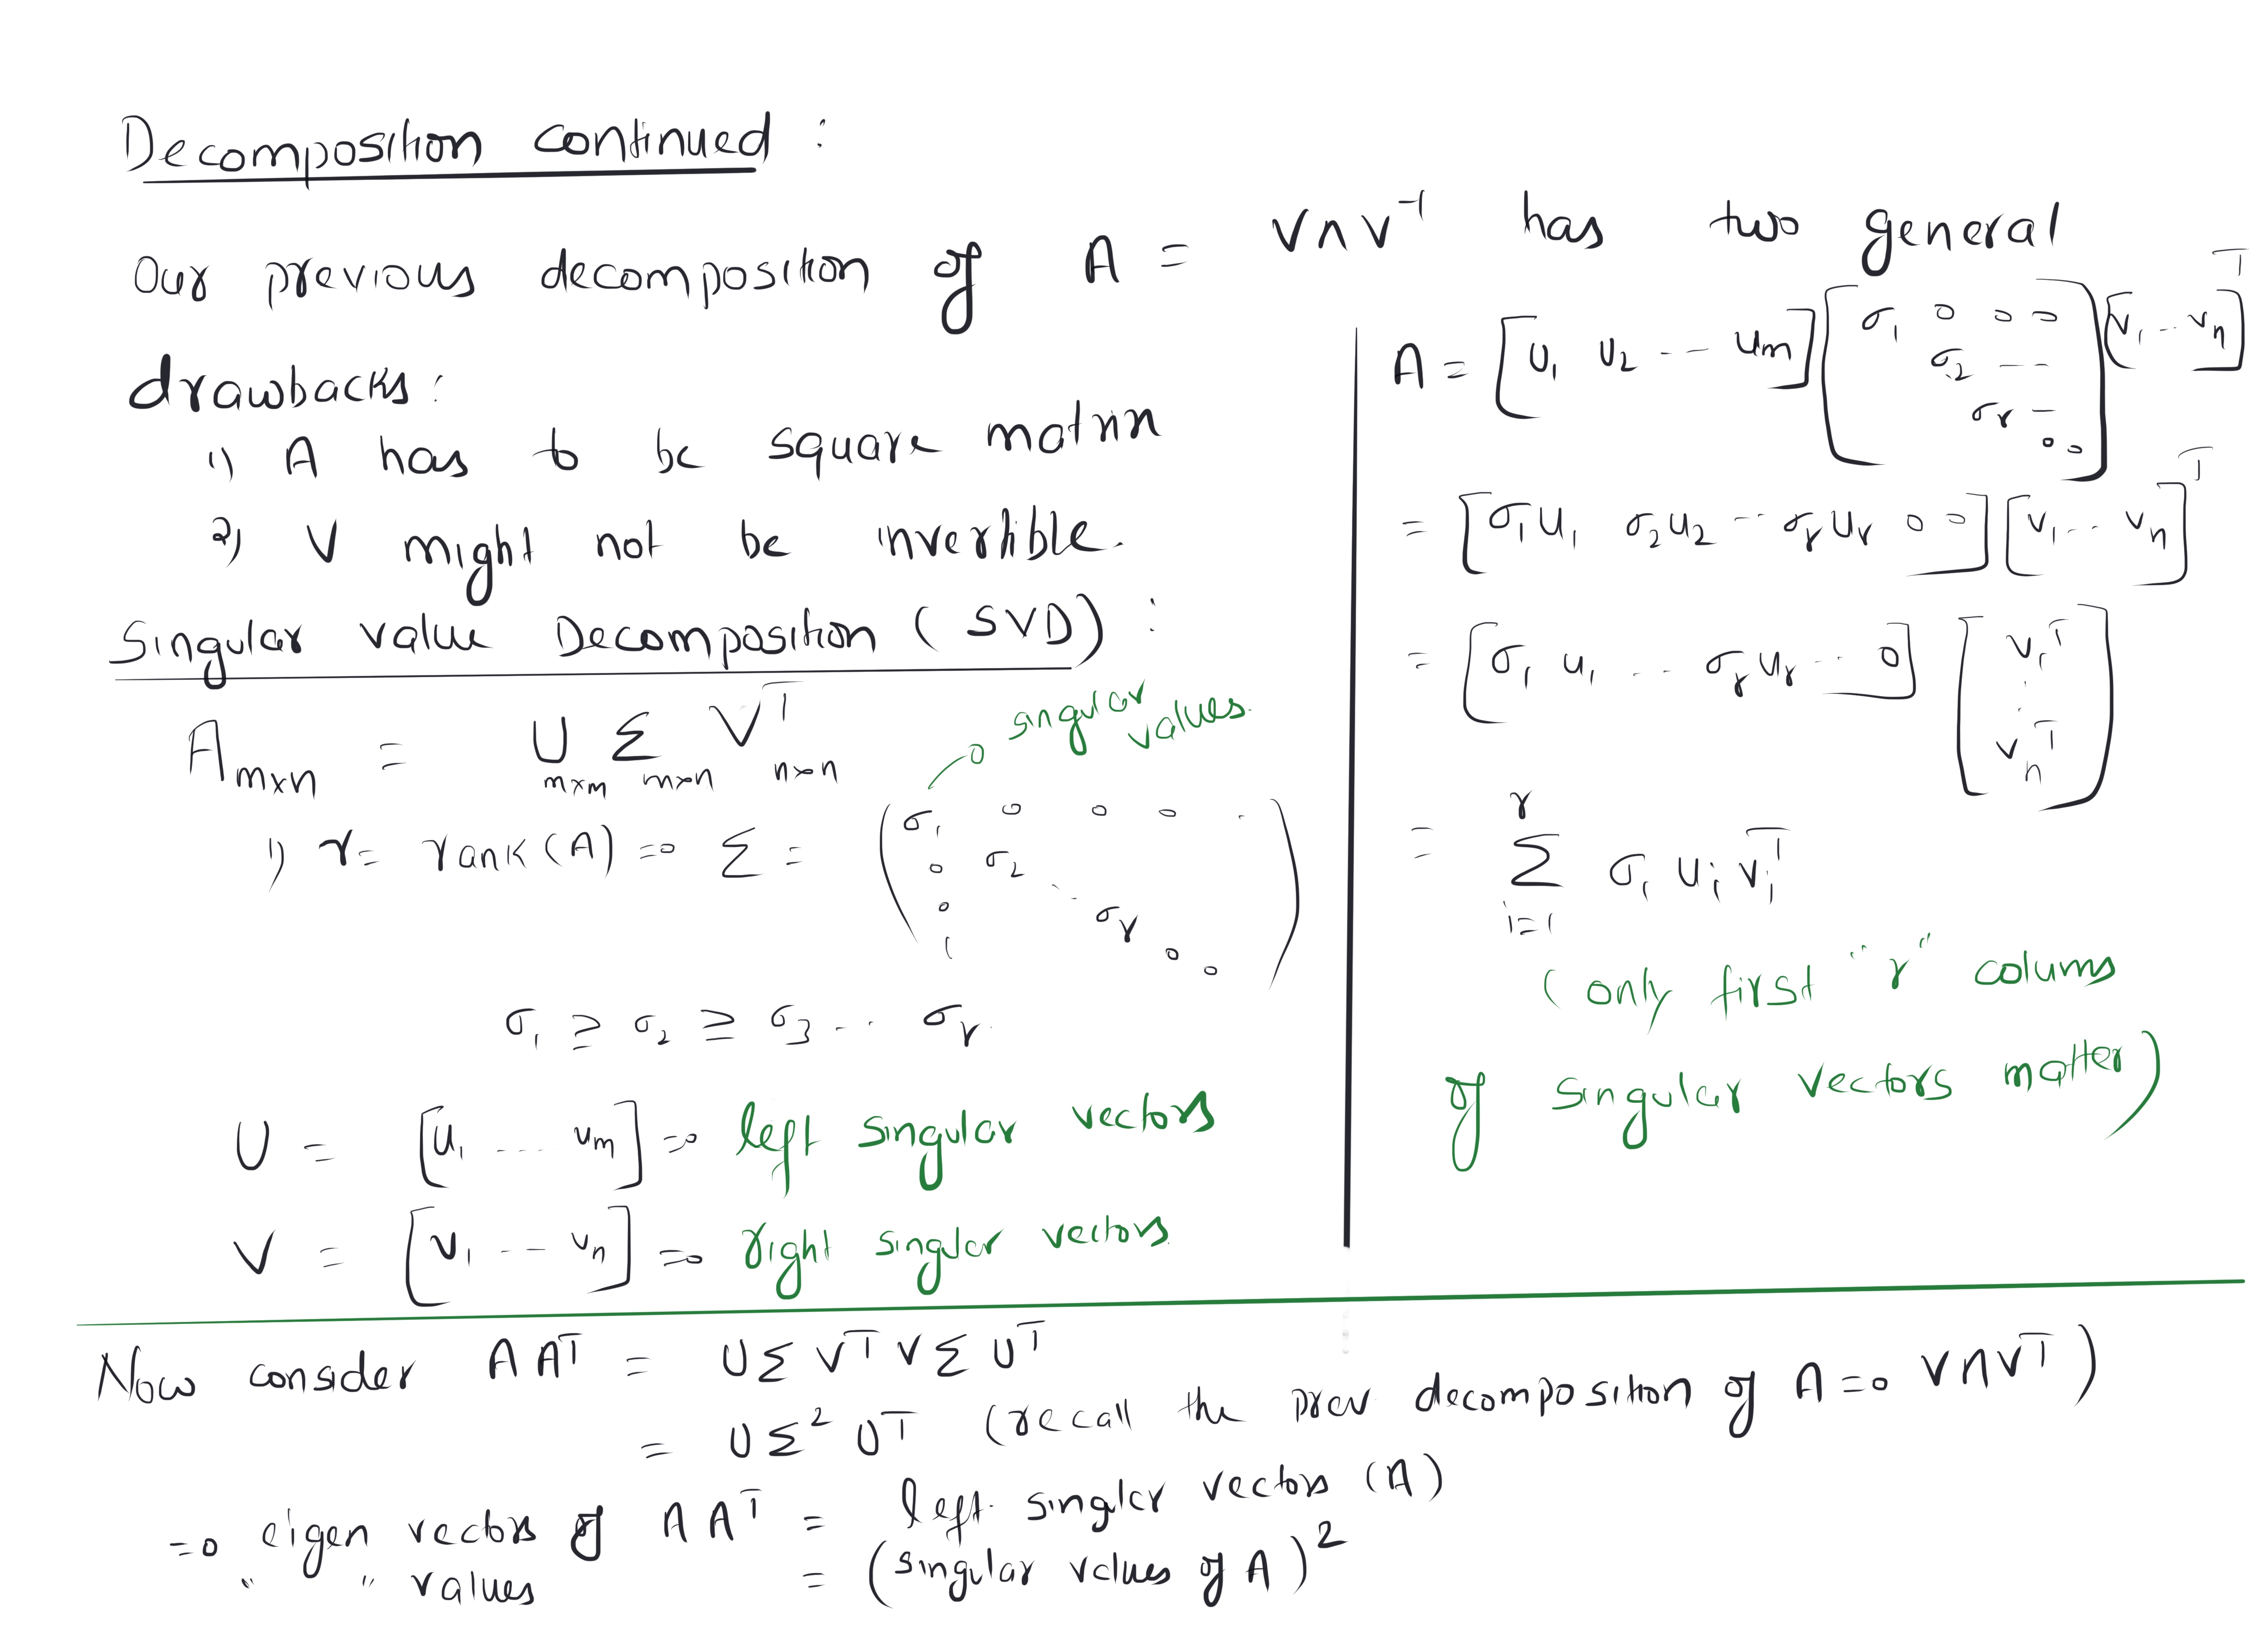 Decomposition continued :
Our previous decomposition of A = VΛV⁻¹ has two general
drawbacks:
1) A has to be square matrix
2) V might not be invertible.
Singular value Decomposition (SVD) :
A_{m×n} = U_{m×m} Σ_{m×n} V^T_{n×n}
singular values.
1) r = rank(A) ⇒ Σ = ( σ₁ 0 0 0 .
0 σ₂ . .
0 σ_r
( 0 0 )
σ₁ ≥ σ₂ ≥ σ₃ ... σ_r.
U = [u₁ ... u_m] ⇒ left singular vectors
V = [v₁ ... v_n] ⇒ right singular vectors
A = [u₁ u₂ ... u_m] [σ₁ 0 0 0
σ₂ ...
σ_r -
0 0] [v₁ ... v_n]^T
= [σ₁u₁ σ₂u₂ ... σ_r u_r 0 0] [v₁ ... v_n]^T
= [σ₁ u₁ ... σ_r u_r ... 0] [v₁^T
.
.
v_n^T]
= Σ_{i=1}^{r} σ_i u_i v_i^T
( only first "r" colums
of singular vectors matter)
Now consider A A^T = U Σ V^T V Σ U^T
= U Σ² U^T (recall the prev decomposition of A ⇒ VΛV^T)
⇒ eigen vectors of A A^T = left singular vectors (A)
" " values = (singular values of A)²